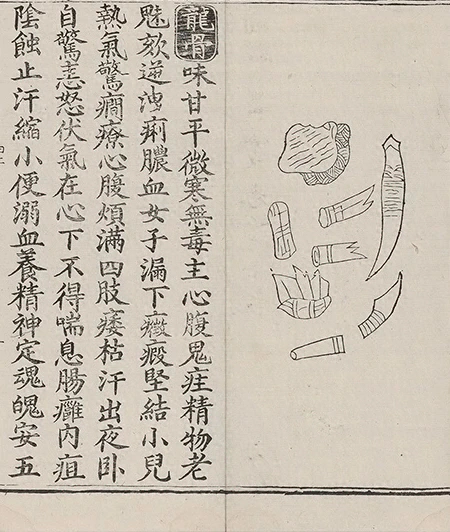 龍骨味甘平微寒無毒主心腹鬼疰精物老
魅欬逆洩痢膿血女子漏下癥瘕堅結小兒
熱氣驚癇療心腹煩滿四肢痿枯汗出夜臥
自驚恚怒伏氣在心下不得喘息腸癰内疽
陰蝕止汗縮小便溺血養精神定魂魄安五